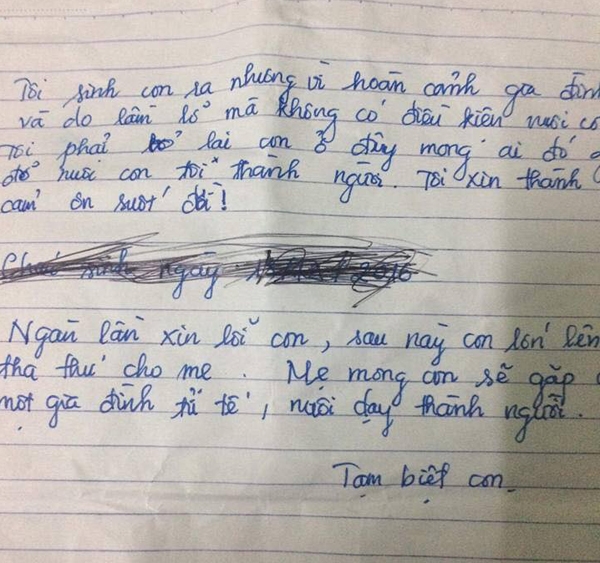 Tôi sinh con ra nhưng vì hoàn cảnh gia đình
và do lầm lỡ mà không có điều kiện nuôi co
Tôi phải bỏ lại con ở đây mong ai đó
đó nuôi con tôi thành người. Tôi xin thành
cảm ơn suốt đời!
Cháu sinh ngày 2016
Ngàn lần xin lỗi con, sau này con lớn lên
tha thứ cho mẹ. Mẹ mong con sẽ gặp
một gia đình tử tế, nuôi dạy thành người.
Tạm biệt con.